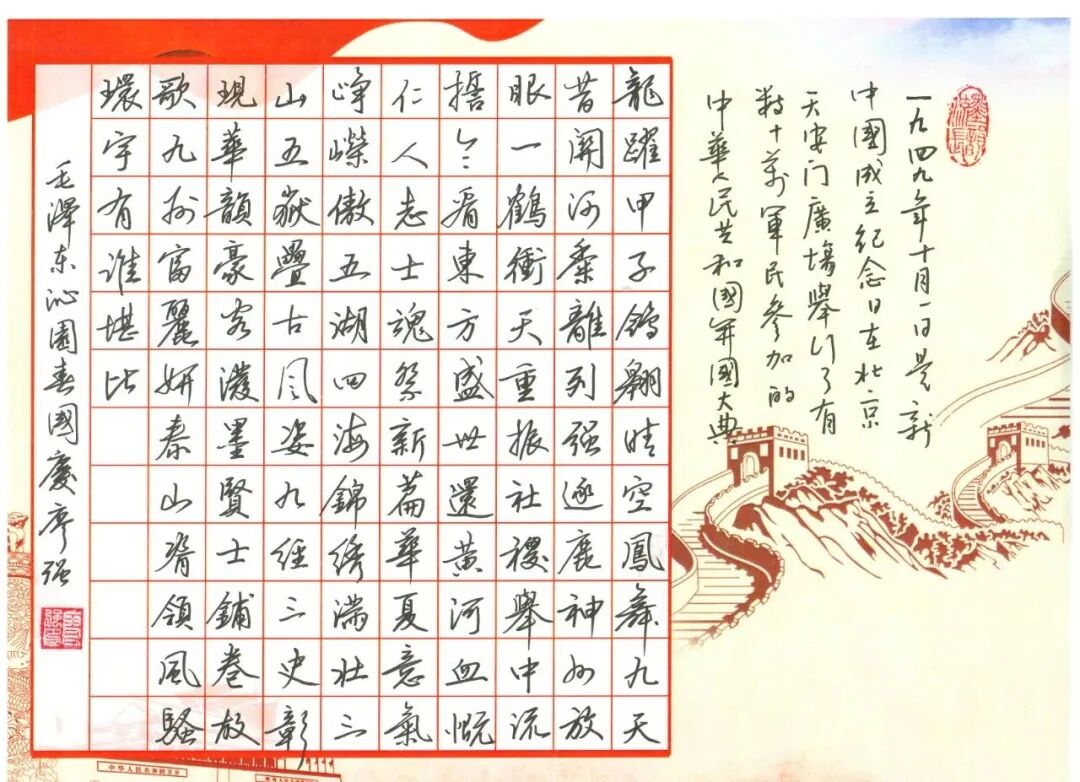 一九四九年十月一日是新
中國成立紀念日在北京
天安门廣場舉行了有
数十萬軍民參加的
中華人民共和國開國大典
龍躍甲子鴿翱晴空鳳舞九天
昔関河黍離列强逐鹿神州放
眼一鶴衝天重振社稷舉中流
今看東方盛世還黄河血慨
仁人志士魂祭新篇華夏意氣
崢嶸傲五湖四海錦綉滿壮三
山五嶽疊古风姿九经三史彰
現華韻豪客潑墨賢士鋪卷放
歌九州富麗妍泰山脊領風騷
環宇有谁堪比
毛澤东沁園春國慶廖强
中华人民共和国万岁